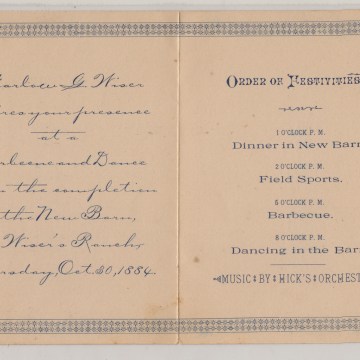 G. Wiser
your presence
at a
and Dance
the completion
the New Barn,
Wiser's Ranch,
Oct. 30, 1884.
ORDER OF FESTIVITIES
1 O'CLOCK P. M.
Dinner in New Barn
2 O'CLOCK P. M.
Field Sports.
5 O'CLOCK P. M.
Barbecue.
8 O'CLOCK P. M.
Dancing in the Bar
MUSIC BY HICK'S ORCHEST